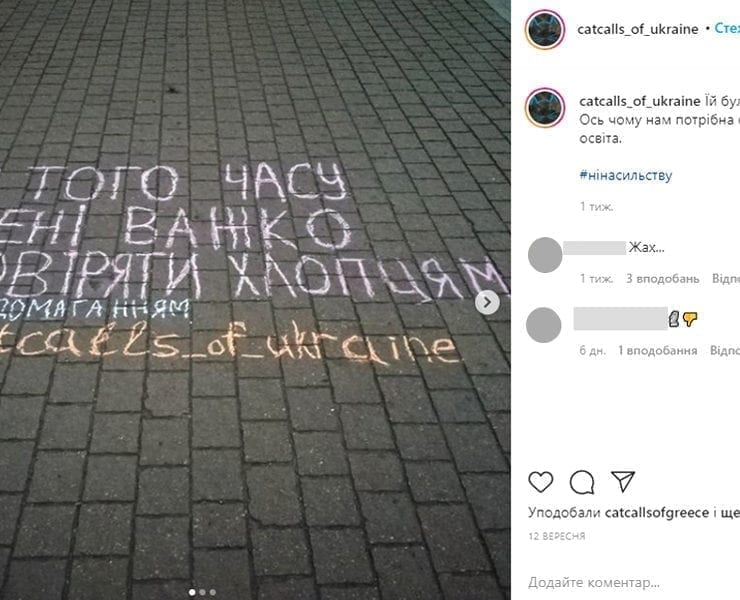 ТОГО ЧАСУ
ЕНІ ВАЖКО
ОВІРЯТИ ХЛОПЦЯМ
ДОМАГАННЯМ
tcalls_of_ukraine
catcalls_of_ukraine • Стех
catcalls_of_ukraine Їй бул
Ось чому нам потрібна
освіта.
#нінасильству
1 тиж.
Жах...
1 тиж. 3 вподобань Відпо
6 дн. 1 вподобання Відпо
Уподобали catcallsofgreece і ще
12 ВЕРЕСНЯ
Додайте коментар...